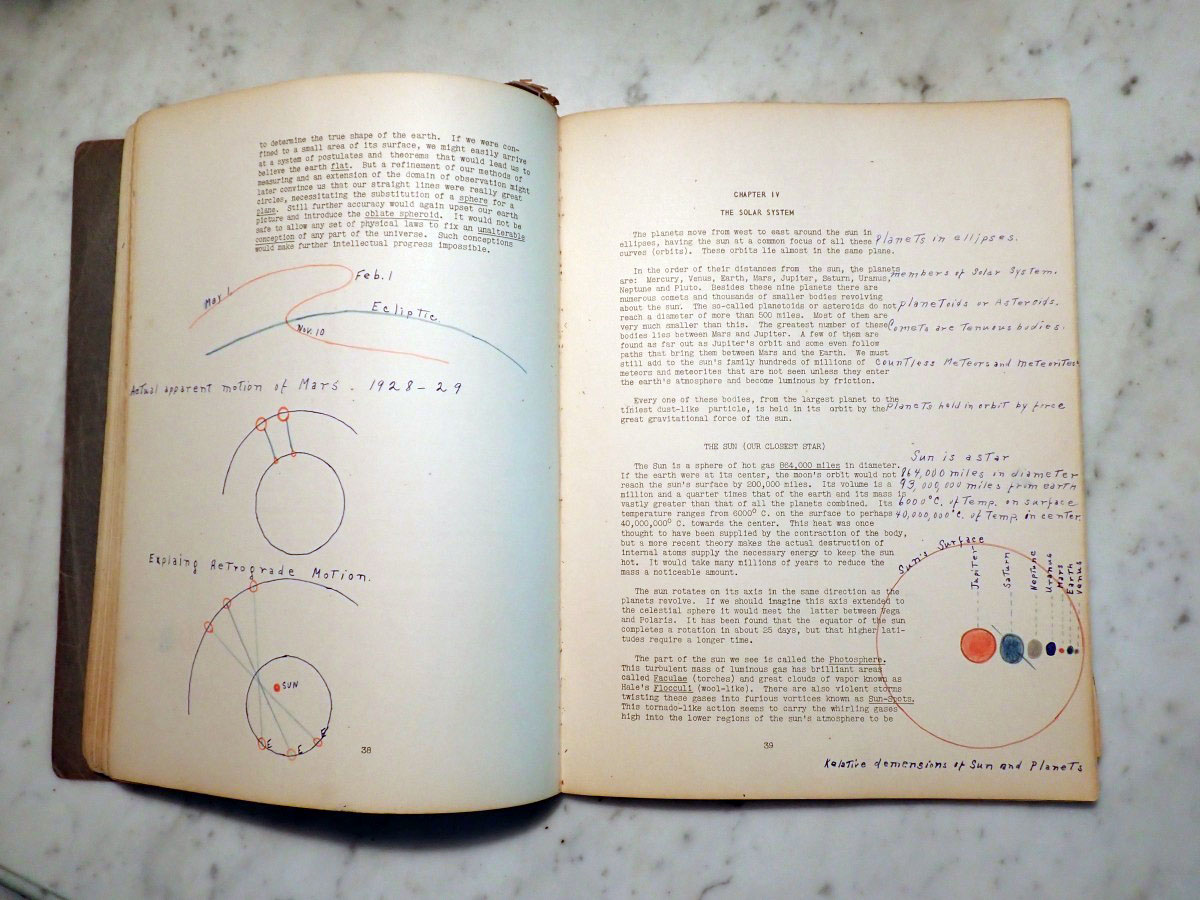 to determine the true shape of the earth. If we were con-
fined to a small area of its surface, we might easily arrive
at a system of postulates and theorems that would lead us to
believe the earth flat. But a refinement of our methods of
measuring and an extension of the domain of observation might
later convince us that our straight lines were really great
circles, necessitating the substitution of a sphere for a
plane. Still further accuracy would again upset our earth
picture and introduce the oblate spheroid. It would not be
safe to allow any set of physical laws to fix an unalterable
conception of any part of the universe. Such conceptions
would make further intellectual progress impossible.
Feb. 1
May 1
Ecliptic
Nov. 10
Actual apparent motion of Mars. 1928-29
Explaing Retrograde Motion.
SUN
E
E
E
38
CHAPTER IV
THE SOLAR SYSTEM
The planets move from west to east around the sun in
ellipses, having the sun at a common focus of all these
curves (orbits). These orbits lie almost in the same plane.
Planets in ellipses.
In the order of their distances from the sun, the planets
are: Mercury, Venus, Earth, Mars, Jupiter, Saturn, Uranus,
Neptune and Pluto. Besides these nine planets there are
numerous comets and thousands of smaller bodies revolving
about the sun. The so-called planetoids or asteroids do not
reach a diameter of more than 500 miles. Most of them are
very much smaller than this. The greatest number of these
bodies lies between Mars and Jupiter. A few of them are
found as far out as Jupiter's orbit and some even follow
paths that bring them between Mars and the Earth. We must
still add to the sun's family hundreds of millions of
meteors and meteorites that are not seen unless they enter
the earth's atmosphere and become luminous by friction.
members of Solar System.
planetoids or Asteroids.
Comets are Tenuous bodies.
Countless Meteors and Meteorites
Every one of these bodies, from the largest planet to the
tiniest dust-like particle, is held in its orbit by the
great gravitational force of the sun.
Planets held in orbit by force
THE SUN (OUR CLOSEST STAR)
The Sun is a sphere of hot gas 864,000 miles in diameter.
If the earth were at its center, the moon's orbit would not
reach the sun's surface by 200,000 miles. Its volume is a
million and a quarter times that of the earth and its mass is
vastly greater than that of all the planets combined. Its
temperature ranges from 6000° C. on the surface to perhaps
40,000,000° C. towards the center. This heat was once
thought to have been supplied by the contraction of the body,
but a more recent theory makes the actual destruction of
internal atoms supply the necessary energy to keep the sun
hot. It would take many millions of years to reduce the
mass a noticeable amount.
Sun is a star
864,000 miles in diameter
93,000,000 miles from earth
6000°C. of Temp. on surface
40,000,000°C. of Temp. in center.
The sun rotates on its axis in the same direction as the
planets revolve. If we should imagine this axis extended to
the celestial sphere it would meet the latter between Vega
and Polaris. It has been found that the equator of the sun
completes a rotation in about 25 days, but that higher lati-
tudes require a longer time.
The part of the sun we see is called the Photosphere.
This turbulent mass of luminous gas has brilliant areas
called Faculae (torches) and great clouds of vapor known as
Hale's Flocculi (wool-like). There are also violent storms
twisting these gases into furious vortices known as Sun-Spots.
This tornado-like action seems to carry the whirling gases
high into the lower regions of the sun's atmosphere to be
Sun's Surface
Jupiter
Saturn
Neptune
Uranus
Mars
Earth
Venus
39
Relative demensions of Sun and Planets